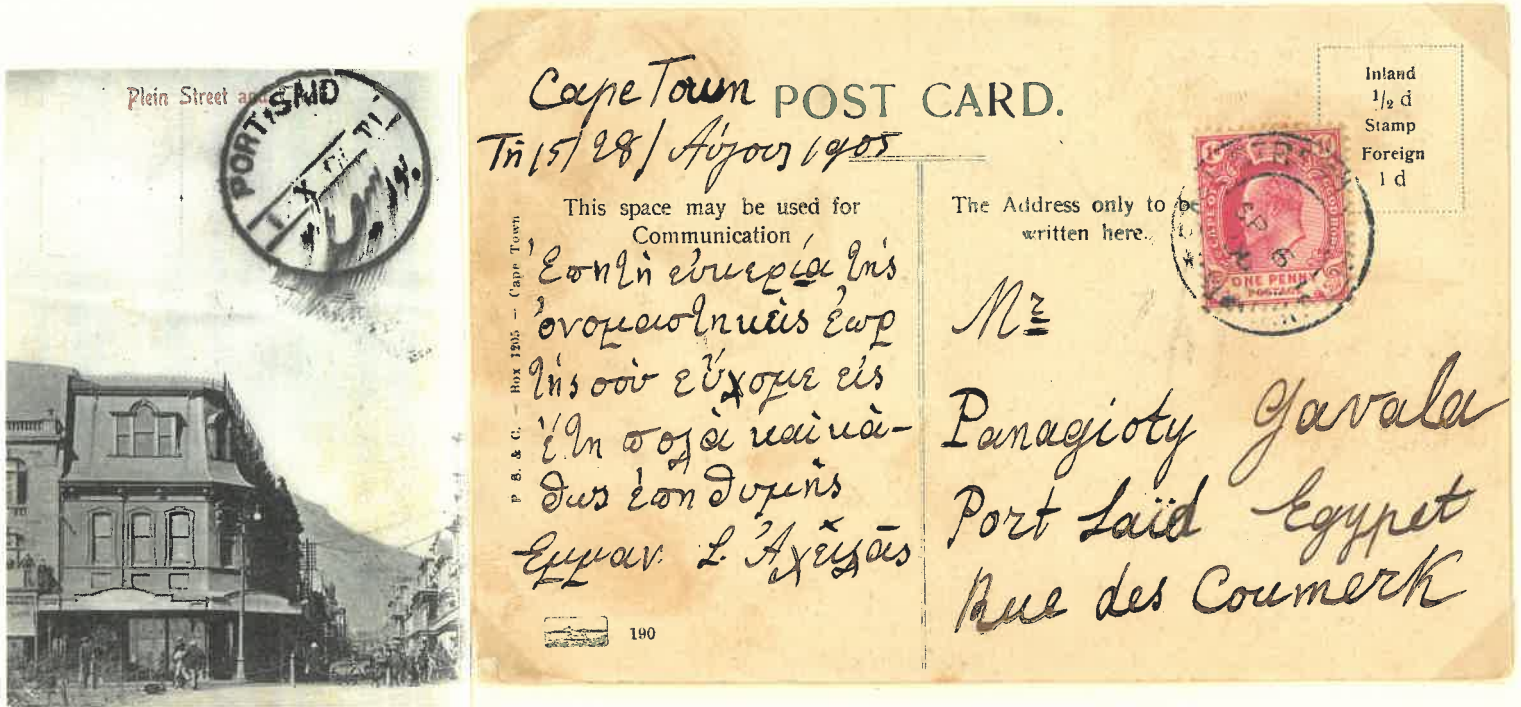 Plein Street
PORT-SAID
Cape Town
POST CARD.
Τῆ 15/28/ Αὐγους 1905
Inland
1/2 d
Stamp
Foreign
1 d
This space may be used for
Communication
The Address only to be
written here.
P. S. & C. – Box 1205 – Cape Town
Ἐπη τῆ εὐκερίᾳ τῆς
ὀνομαστηκεῖς ἑωρ
τῆς σοὺ εὔχομε εἰς
ἔτη πολὰ καὶ κὰ-
θως ἐπηθυμῆς
Εμμαν. Ἀχειλᾶς
190
ONE PENNY
POSTAGE
Mr
Panagioty Gavala
Port Saïd Egypet
Rue des Coumerk